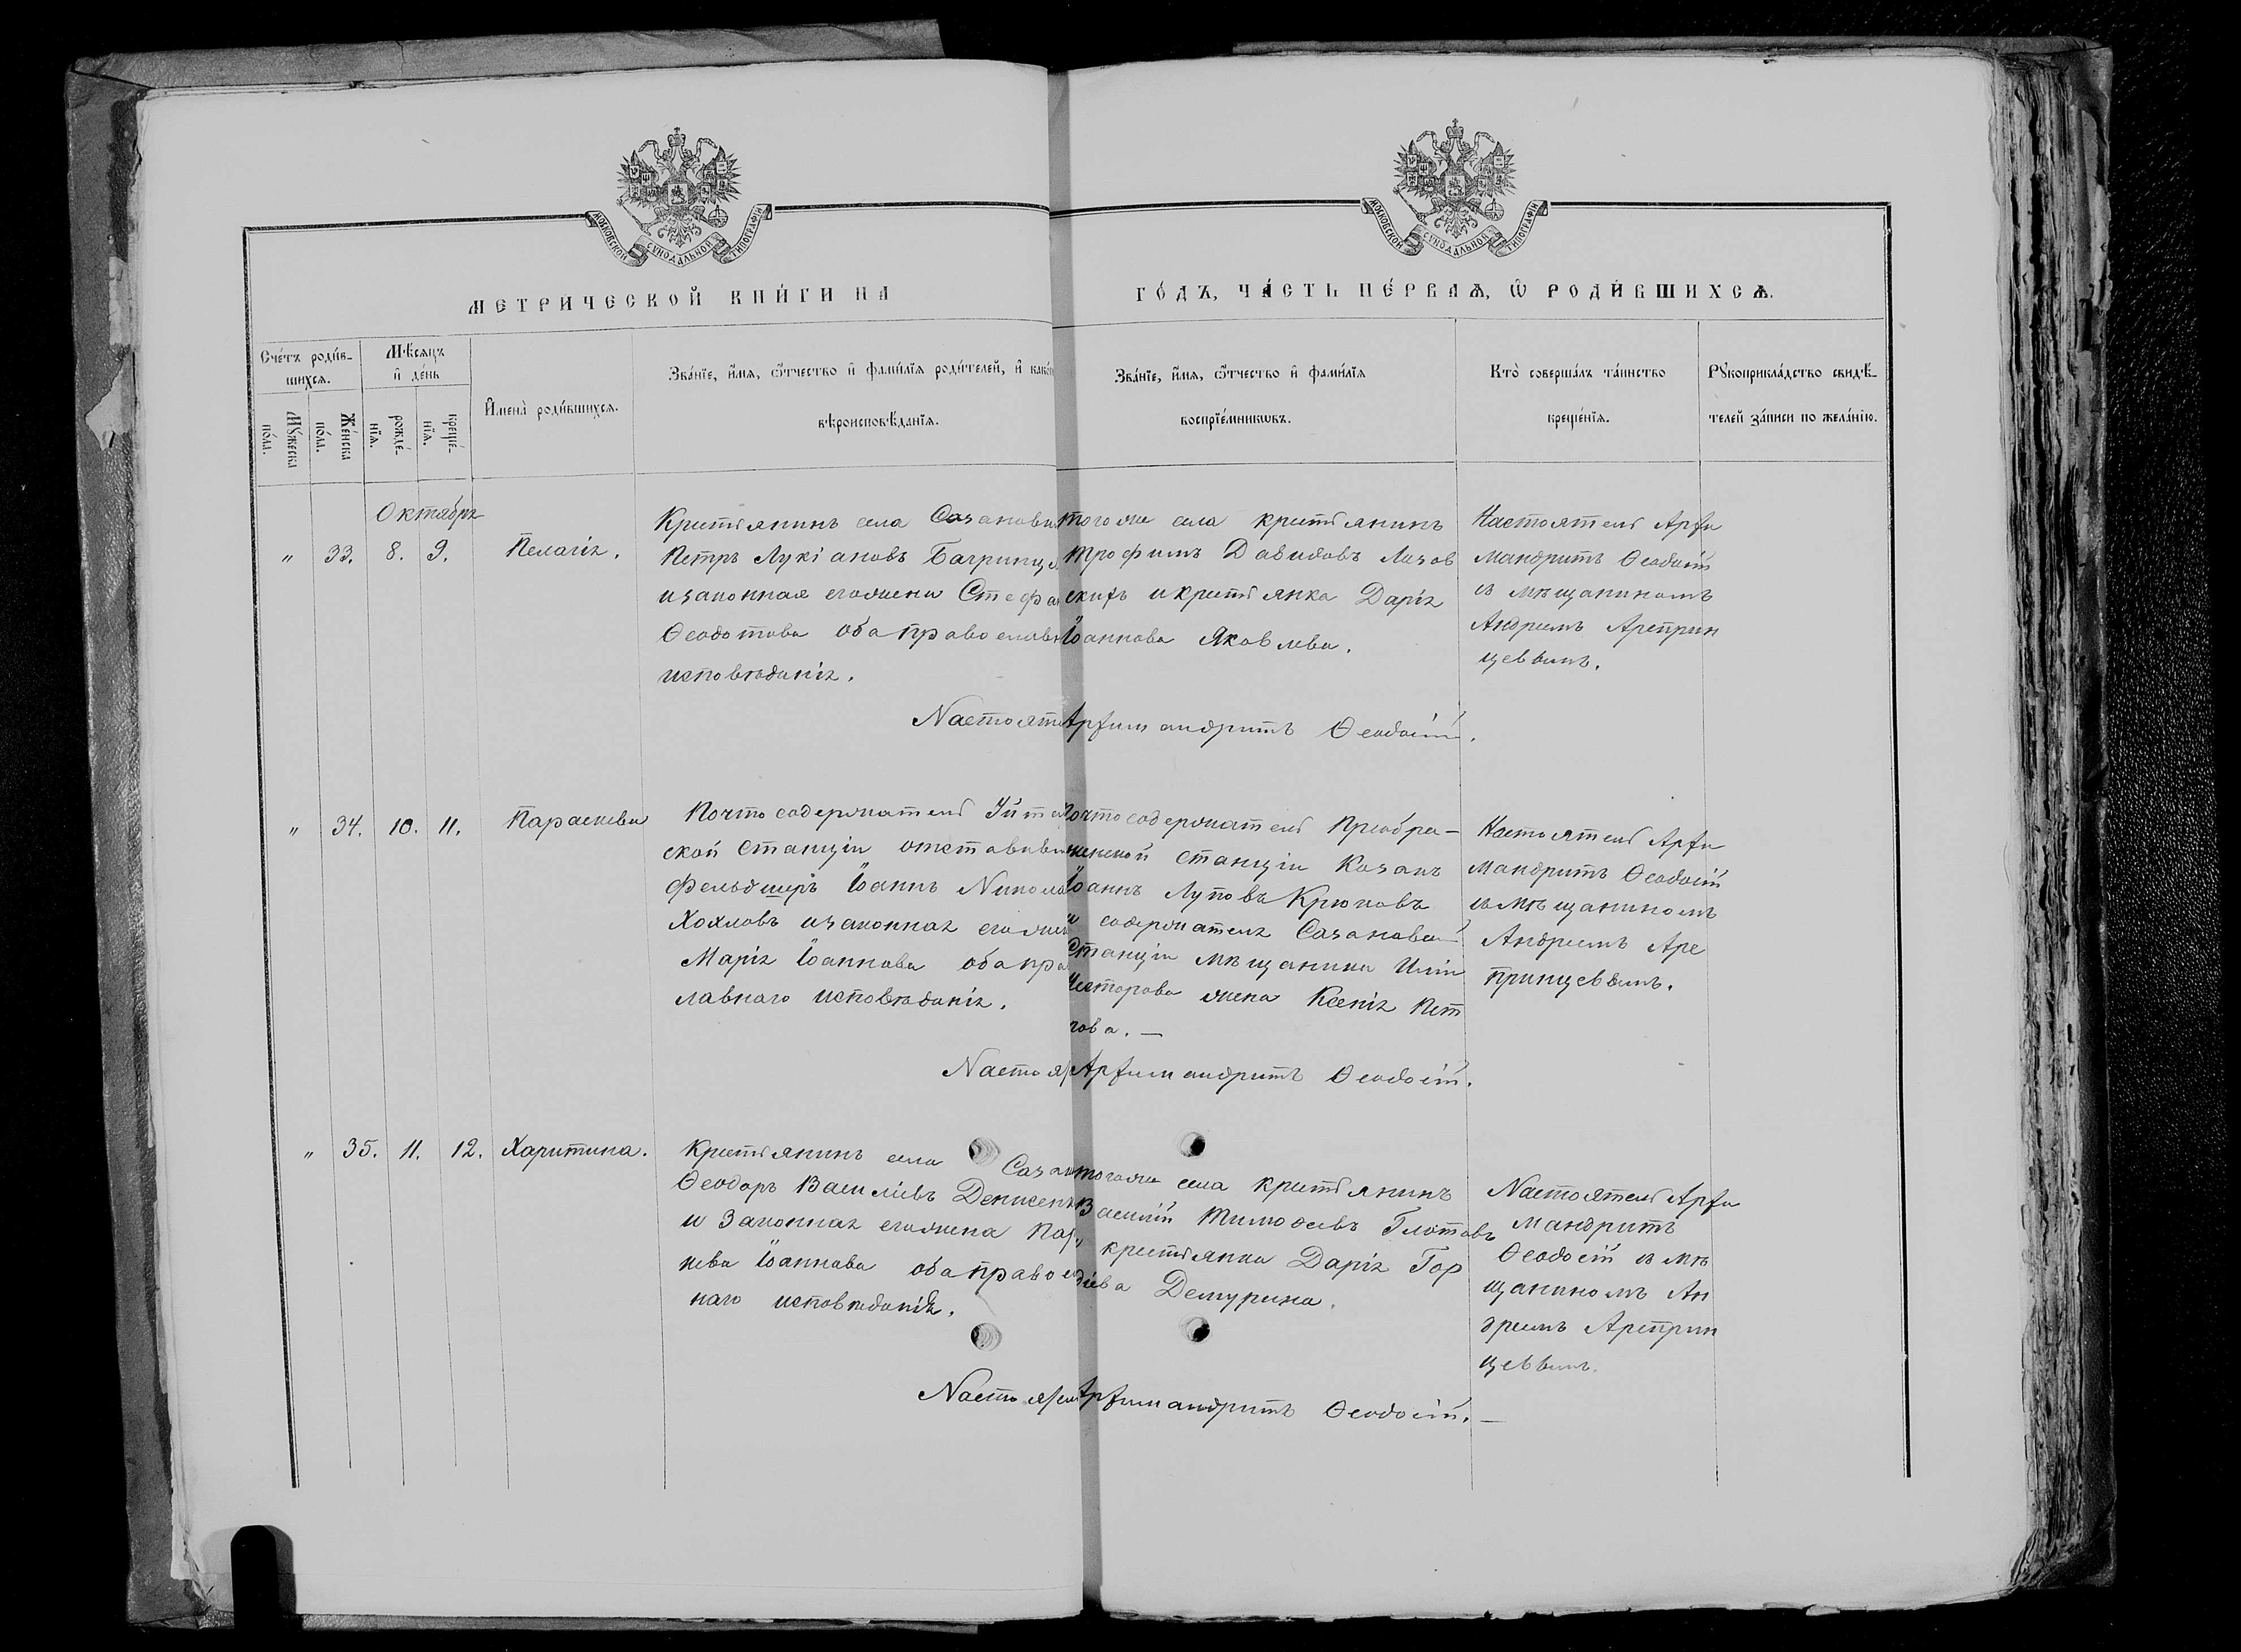 МОСКОВСКОЙ СУНОДАЛЬНОЙ ТИПОГРАФІИ
МОСКОВСКОЙ СУНОДАЛЬНОЙ ТИПОГРАФІИ
МЕТРИЧЕСКОЙ КНИ́ГИ НА
ГО́ДЪ, ЧА́СТЬ ПЕ́РВАѦ, Ѡ РОДИ́ВШИХСѦ.
Сче́тъ роди́в-
шихсѧ.
Мѣ́сѧцъ
и҆ де́нь
Мꙋ́жеска
по́ла.
Же́нска
по́ла.
рожде́-
нїѧ.
креще́-
нїѧ.
И҆мена̀ роди́вшихсѧ.
Зва́нїе, и҆́мѧ, ѻ҆́тчество и҆ фами́лїѧ роди́телей, и҆ како́
вѣроисповѣ́данїѧ.
Зва́нїе, и҆́мѧ, ѻ҆́тчество и҆ фами́лїѧ
воспрїе́мникѡвъ.
Кто̀ соверша́лъ та́инство
креще́нїѧ.
Рꙋкоприкла́дство свидѣ́-
телей за́писи по жела́нїю.
Октябрь
" 33. 8. 9. Пелагія.
Крестьянинъ села Сазанов
Петръ Лукіановъ Багринц
и законная его жена Стефа
Ѳеодотова оба православн
исповѣданія.
того же села крестьянинъ
Трофимъ Давидовъ Лазов
скихъ и крестьянка Дарія
Іоаннова Яковлева.
Настоятель Архи
мандритъ Ѳеодосій
съ мѣщаниномъ
Андреемъ Арепрін
цевымъ.
Настояте Архимандритъ Ѳеодосій.
" 34. 10. 11. Параскева
Почтосодержатель
ской Станціи отставн
фельдшеръ Іоаннъ Никола
Хохловъ и законная его жен
Марія Іоаннова оба пра
славнаго исповѣданія.
Почтосодержатель Преобра-
женской станціи Казакъ
Іоаннъ Луповъ Крюковъ
и содержателя Сазановской
Станціи мѣщанина Иліи
Нестерова жена Ксенія Пет
рова. —
Настоятель Архи
мандритъ Ѳеодосій
съ мѣщаниномъ
Андреемъ Аре
принцевымъ.
Настоя Архимандритъ Ѳеодосій.
" 35. 11. 12. Харитина.
Крестьянинъ села Сазан
Ѳеодоръ Василіевъ Денисен
и Законная его жена Пар
кева Іоаннова оба правос
наго исповѣданія.
того же села крестьянинъ
Василій Тимоѳеевъ Глотовъ
крестьянка Дарія Гор
діева Демурина.
Настоятель Архи
мандритъ
Ѳеодосій съ мѣ
щаниномъ Ан
дреемъ Арепрін
цевымъ.
Настоятел Архимандритъ Ѳеодосій. —